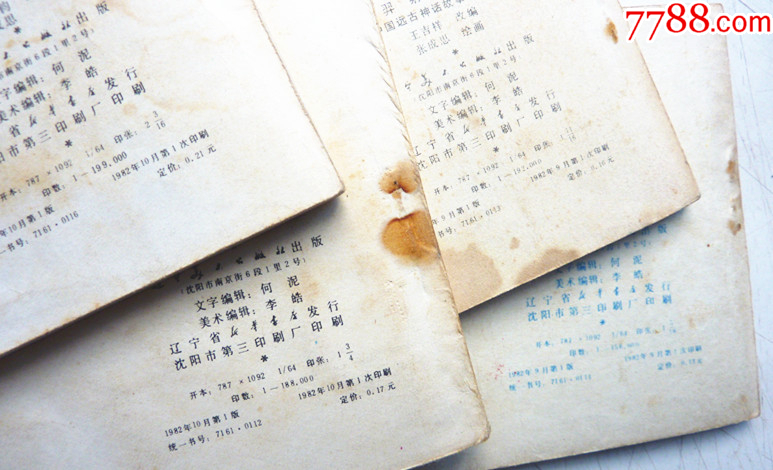 7788.com
出版
(沈阳市南京街6段1里2号)
文字编辑: 何 泥
美术编辑: 李 皓
发行
沈阳市第三印刷厂印刷
*
1/64
印张: 2 3/16
印数: 1—199,000
1982年10月第1次印刷
定价: 0.21元
年10月第1版
书号: 7161·0116
中国远古神话故事
王吉祥 改编
张成思 绘画
出版
(沈阳市南京街6段1里2号)
文字编辑: 何 泥
美术编辑: 李 皓
辽宁省新华书店发行
沈阳市第三印刷厂印刷
*
开本: 787×1092 1/64
印数: 1—192,000
1982年9月第1次印刷
年9月第1版
出版
(沈阳市南京街6段1里2号)
文字编辑: 何 泥
美术编辑: 李 皓
辽宁省新华书店发行
沈阳市第三印刷厂印刷
*
开本: 787×1092 1/64 印张: 1 3/4
印数: 1—188,000
1982年10月第1版 1982年10月第1次印刷
统一书号: 7161·0112 定价: 0.17元
出版
文字编辑: 何 泥
美术编辑: 李 皓
辽宁省新华书店发行
沈阳市第三印刷厂印刷
开本: 787×1092 1/64
1982年9月第1版 1982年9月第1次印刷
定价: 0.17元